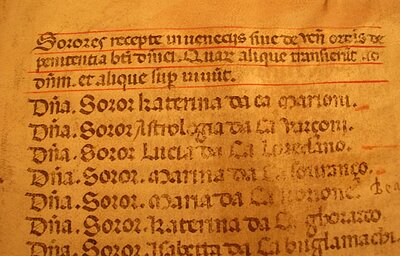 Sorores recepte in uenecijs siue de ven̄ ordīs de
penitentia btī dn̄ici. Quare alique transierūt ad
dn̄m. et alique sup̄ uiuūt.
Dn̄a. Soror katerina da ca marioni.
Dn̄a. Soror Astrologia da Ca
Dn̄a. Soror Lucia da Ca Loredano.
Dn̄a. Soror. Marina da Ca
Dn̄a. Soror. Maria da Ca
Dn̄a. Soror. katerina da Ca
Dn̄a. Soror. Isabetta da Ca buglamachi.